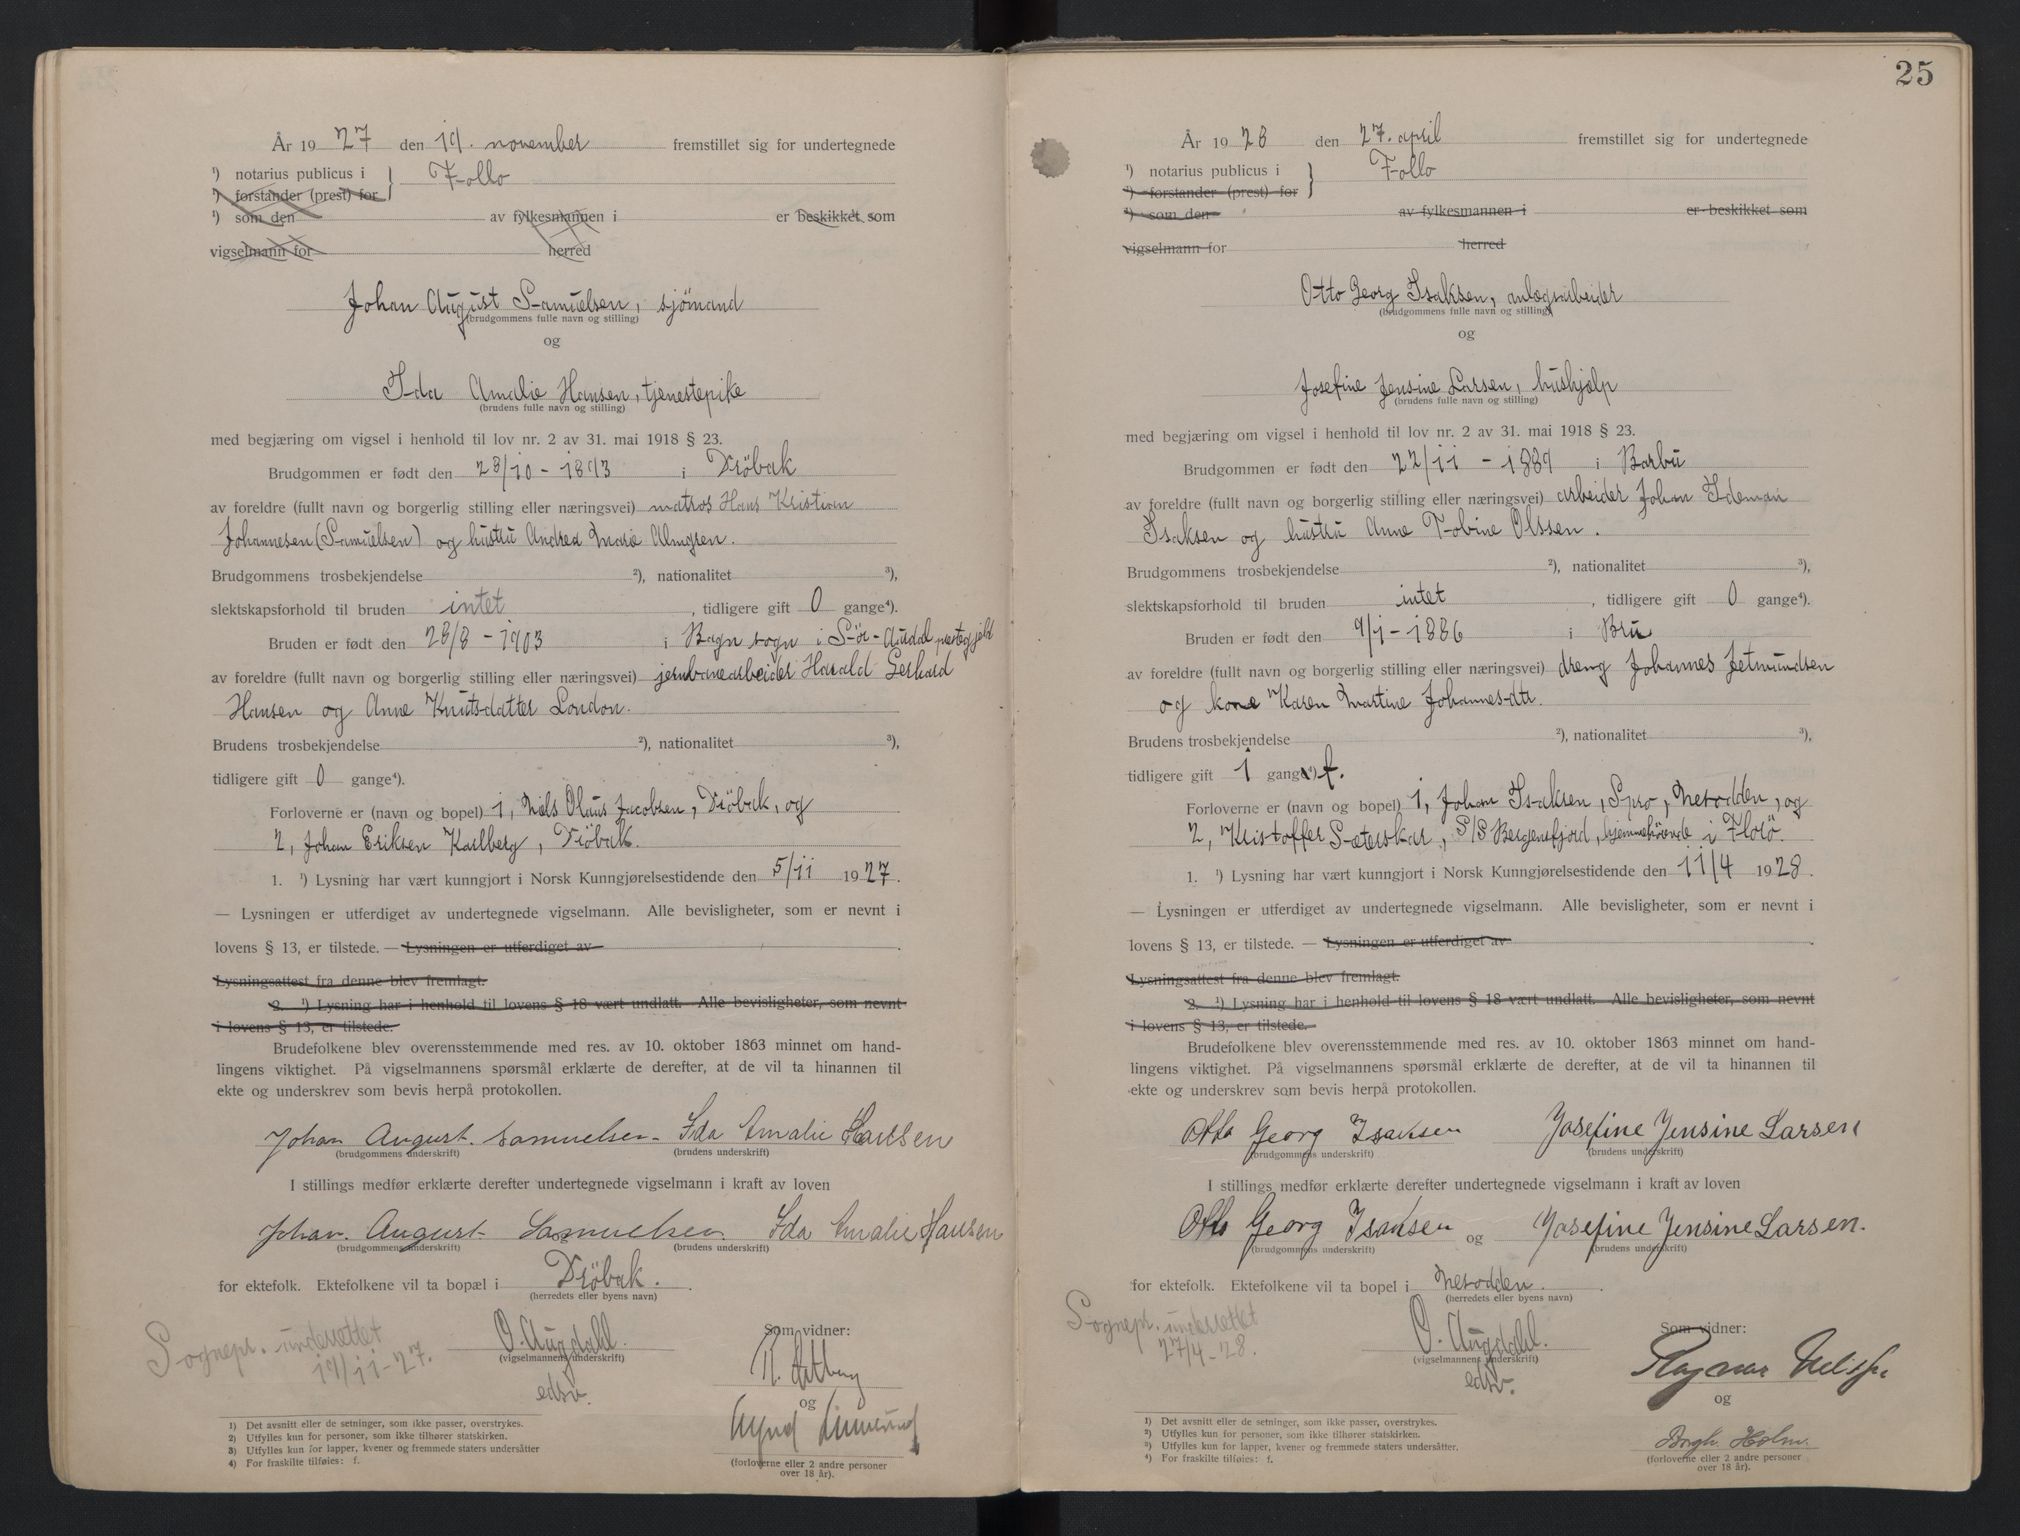 År 1927 den 19. november fremstillet sig for undertegnede
¹) notarius publicus i } Follo
¹) forstander (prest) for
¹) som den av fylkesmannen i er beskikket som
vigselmann for herred
Johan August Samuelsen, sjömand
(brudgommens fulle navn og stilling)
og
Ida Amalie Hansen, tjenestepike
(brudens fulle navn og stilling)
med begjæring om vigsel i henhold til lov nr. 2 av 31. mai 1918 § 23.
Brudgommen er født den 28/10 - 1893 i Dröbak
av foreldre (fullt navn og borgerlig stilling eller næringsvei) matros Hans Kristian
Johannesen (Samuelsen) og hustru Andrea Marie Almgren.
Brudgommens trosbekjendelse ²), nationalitet ³),
slektskapsforhold til bruden intet, tidligere gift 0 gange⁴).
Bruden er født den 28/8 - 1903 i Bagn sogn i Sör-Aurdal prestegjeld
av foreldre (fullt navn og borgerlig stilling eller næringsvei) jernbanearbeider Harald Gerhard
Hansen og Anne Knutsdatter London.
Brudens trosbekjendelse ²), nationalitet ³),
tidligere gift 0 gange⁴).
Forloverne er (navn og bopel) 1, Niels Olaus Jacobsen, Dröbak, og
2, Johan Eriksen Karlberg, Dröbak.
1. ¹) Lysning har vært kunngjort i Norsk Kunngjørelsestidende den 5/11 1927.
— Lysningen er utferdiget av undertegnede vigselmann. Alle bevisligheter, som er nevnt i
lovens § 13, er tilstede. — Lysningen er utferdiget av
Lysningsattest fra denne blev fremlagt.
2. ¹) Lysning har i henhold til lovens § 18 vært undlatt. Alle bevisligheter, som nevnt
i lovens § 13, er tilstede.
Brudefolkene blev overensstemmende med res. av 10. oktober 1863 minnet om hand-
lingens viktighet. På vigselmannens spørsmål erklærte de derefter, at de vil ta hinannen til
ekte og underskrev som bevis herpå protokollen.
Johan August Samuelsen - Ida Amalie Hansen
(brudgommens underskrift) (brudens underskrift)
I stillings medfør erklærte derefter undertegnede vigselmann i kraft av loven
Johan August Samuelsen Ida Amalie Hansen
(brudgommens underskrift) (brudens underskrift)
for ektefolk. Ektefolkene vil ta bopæl i Dröbak.
(herredets eller byens navn)
Sognepr. underrettet
19/11-27.
O. Augdahl.
(vigselmannens underskrift)
edsv.
Som vidner:
og
(forloverne eller 2 andre personer
over 18 år).
1) Det avsnitt eller de setninger, som ikke passer, overstrykes.
2) Utfylles kun for personer, som ikke tilhører statskirken.
3) Utfylles kun for lapper, kvener og fremmede staters undersåtter
4) For fraskilte tilføies: f.
25
År 1928 den 27. april fremstillet sig for undertegnede
¹) notarius publicus i } Follo
¹) forstander (prest) for
¹) som den av fylkesmannen i er beskikket som
vigselmann for herred
Otto Georg Isaksen, anlægsarbeider
(brudgommens fulle navn og stilling)
og
Josefine Jensine Larsen, hushjælp
(brudens fulle navn og stilling)
med begjæring om vigsel i henhold til lov nr. 2 av 31. mai 1918 § 23.
Brudgommen er født den 22/11 - 1889 i Barbu
av foreldre (fullt navn og borgerlig stilling eller næringsvei) arbeider Johan Ideman
Isaksen og hustru Anne Tobine Olssen.
Brudgommens trosbekjendelse ²), nationalitet ³),
slektskapsforhold til bruden intet, tidligere gift 0 gange⁴).
Bruden er født den 9/1 - 1886 i Bru
av foreldre (fullt navn og borgerlig stilling eller næringsvei) dreng Johannes Jetmundsen
og kone Karen Martine Johannes-dtr.
Brudens trosbekjendelse ²), nationalitet ³),
tidligere gift 1 gang⁴) f.
Forloverne er (navn og bopel) 1, Johan Isaksen, Spro, Nesodden, og
2, Kristoffer Sæterskar, S/S Bergensfjord, hjemmehörende i Florö.
1. ¹) Lysning har vært kunngjort i Norsk Kunngjørelsestidende den 11/4 1928.
— Lysningen er utferdiget av undertegnede vigselmann. Alle bevisligheter, som er nevnt i
lovens § 13, er tilstede. — Lysningen er utferdiget av
Lysningsattest fra denne blev fremlagt.
2. ¹) Lysning har i henhold til lovens § 18 vært undlatt. Alle bevisligheter, som nevnt
i lovens § 13, er tilstede.
Brudefolkene blev overensstemmende med res. av 10. oktober 1863 minnet om hand-
lingens viktighet. På vigselmannens spørsmål erklærte de derefter, at de vil ta hinannen til
ekte og underskrev som bevis herpå protokollen.
Otto Georg Isaksen Josefine Jensine Larsen
(brudgommens underskrift) (brudens underskrift)
I stillings medfør erklærte derefter undertegnede vigselmann i kraft av loven
Otto Georg Isaksen og Josefine Jensine Larsen.
(brudgommens underskrift) (brudens underskrift)
for ektefolk. Ektefolkene vil ta bopel i Nesodden.
(herredets eller byens navn)
Sognepr. underrettet
27/4-28.
O. Augdahl.
(vigselmannens underskrift)
edsv.
Som vidner:
Ragnar
og
Borgh. Holm.
(forloverne eller 2 andre personer
over 18 år).
1) Det avsnitt eller de setninger, som ikke passer, overstrykes.
2) Utfylles kun for personer, som ikke tilhører statskirken.
3) Utfylles kun for lapper, kvener og fremmede staters undersåtter.
4) For fraskilte tilføies: f.